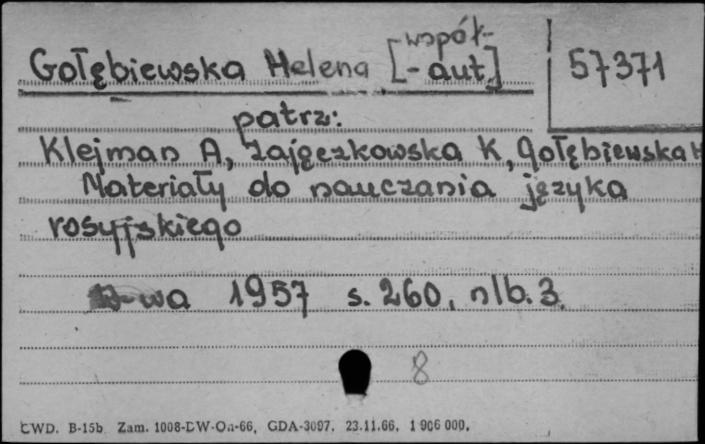 Gołębiewska Helena [współ-
- aut]
57371
patrz:
Klejman A, Zajęczkowska K, Gołębiewska H
Materiały do nauczania języka
rosyjskiego
W-wa 1957 s. 260, nlb. 3
8
CWD. B-15b Zam. 1008-DW-On-66, GDA-3097, 23.11.66, 1 906 000,